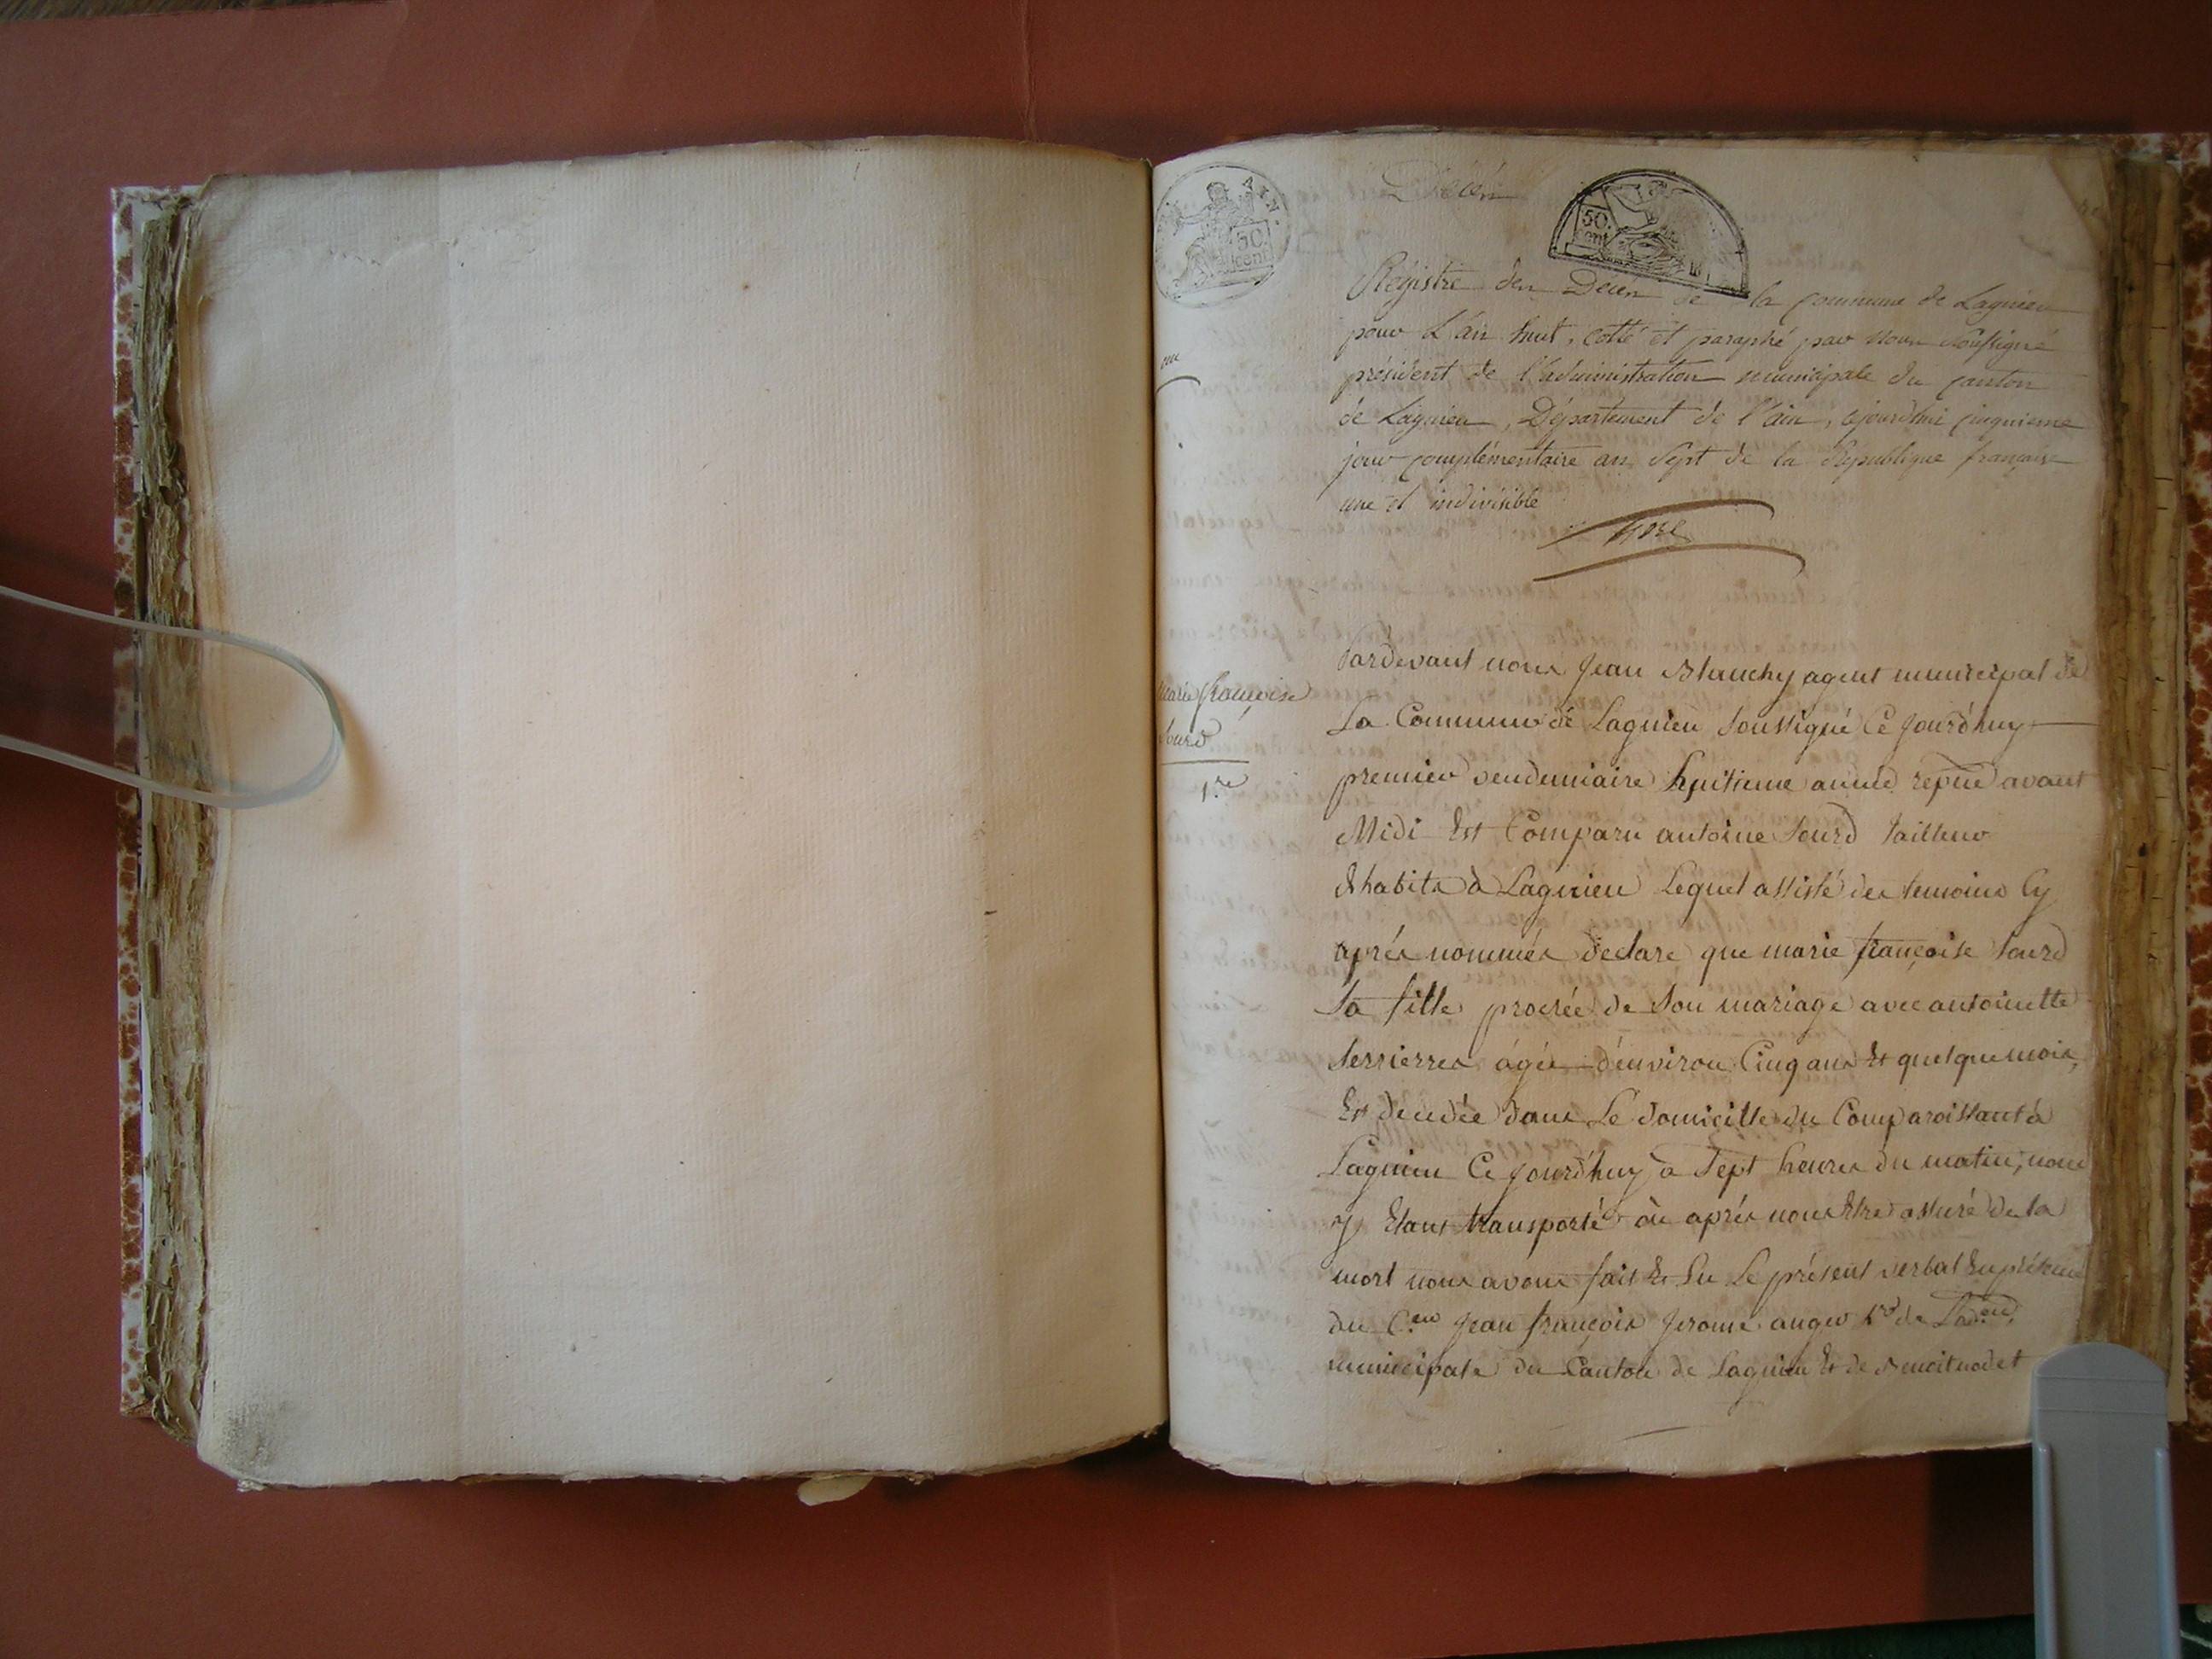 AIN.
50
cent
Décès
50.
cent
Régistre des Décès de la commune de Lagnieu
pour L'an huit, cotté et paraphé par nous soussigné
président de l'administration municipale du canton
de Lagnieu, Département de l'ain, cejourd'hui cinquieme
jour complémentaire an Sept de la République française
une et indivisible
marie françoise
Sourd
1.re
Pardevant nous Jean Blanchy agent municipal de
La Commune de Lagnieu Soussigné Ce jourd'huy
premier vendemiaire huitieme année repue avant
Midi Est Comparu antoine Sourd tailleur
d'habits à Lagnieu Lequel assisté des temoins Cy
aprés nommés declare que marie françoise Sourd
Sa fille procrée de Son mariage avec antoinette
Serrierres agée d'environ Cinq ans Et quelque mois,
Est decedée dans Le domicille du Comparoissant à
Lagnieu Ce jourd'huy à Sept heures du matin, nous
y Etant transporté où aprés nous Etre assuré de la
mort nous avons fait Et Lu Le présent verbal En présence
du C.en Jean françois Jerome auger de Lad.on
municipale du Canton de Lagnieu Et de